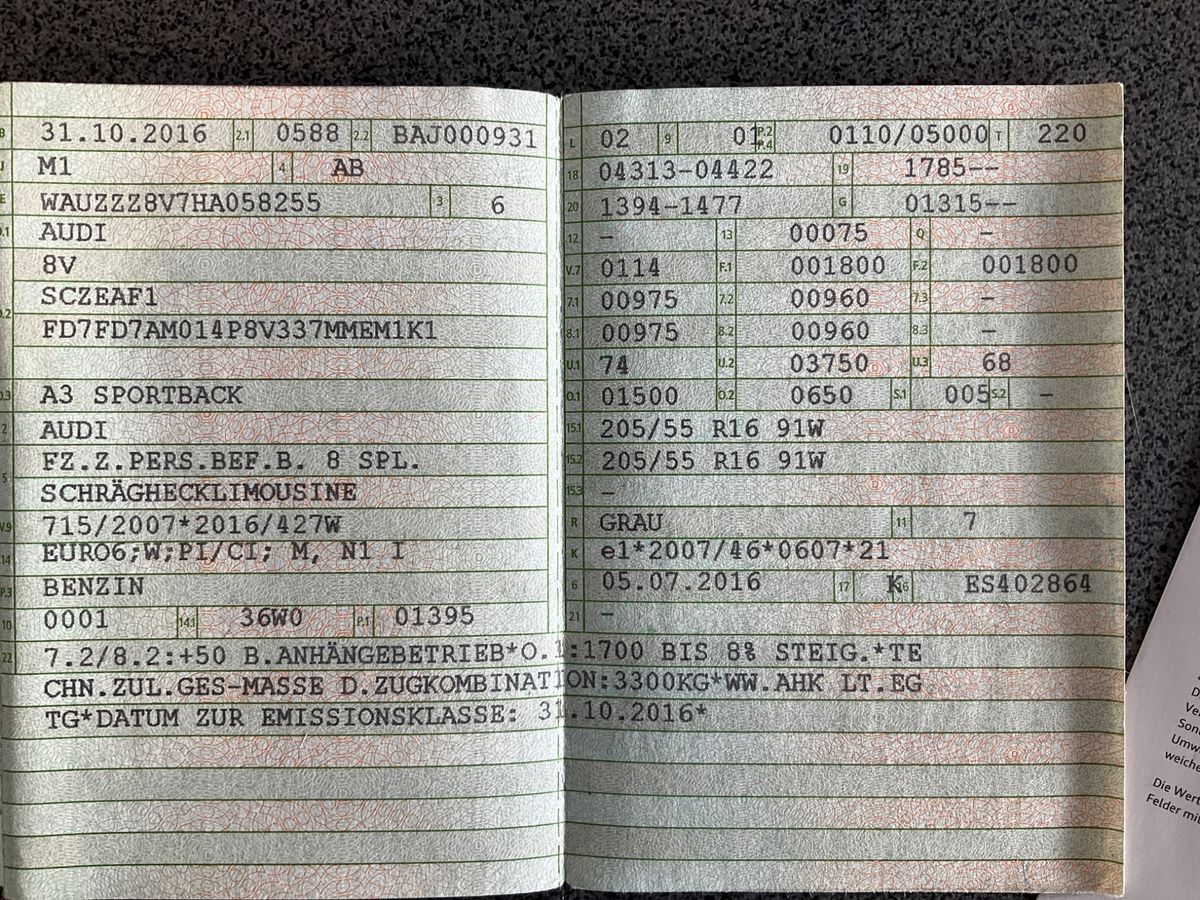 B 31.10.2016 2.1 0588 2.2 BAJ000931
J M1 4 AB
E WAUZZZ8V7HA058255 3 6
D.1 AUDI
8V
D.2 SCZEAF1
FD7FD7AM014P8V337MMEM1K1
D.3 A3 SPORTBACK
2 AUDI
5 FZ.Z.PERS.BEF.B. 8 SPL.
SCHRÄGHECKLIMOUSINE
V.9 715/2007*2016/427W
14 EURO6;W;PI/CI; M, N1 I
P.3 BENZIN
10 0001 14.1 36W0 P.1 01395
L 02 9 01 P.2 P.4 0110/05000 T 220
18 04313-04422 19 1785--
20 1394-1477 G 01315--
12 – 13 00075 Q –
V.7 0114 F.1 001800 F.2 001800
7.1 00975 7.2 00960 7.3 –
8.1 00975 8.2 00960 8.3 –
U.1 74 U.2 03750 U.3 68
O.1 01500 O.2 0650 S.1 005 S.2 –
15.1 205/55 R16 91W
15.2 205/55 R16 91W
15.3 –
R GRAU 11 7
K e1*2007/46*0607*21
6 05.07.2016 17 K 16 ES402864
21 –
22 7.2/8.2:+50 B.ANHÄNGEBETRIEB*O.1:1700 BIS 8% STEIG.*TE
CHN.ZUL.GES-MASSE D.ZUGKOMBINATION:3300KG*WW.AHK LT.EG
TG*DATUM ZUR EMISSIONSKLASSE: 31.10.2016*
Umw
weiche
Die Wert
Felder mit